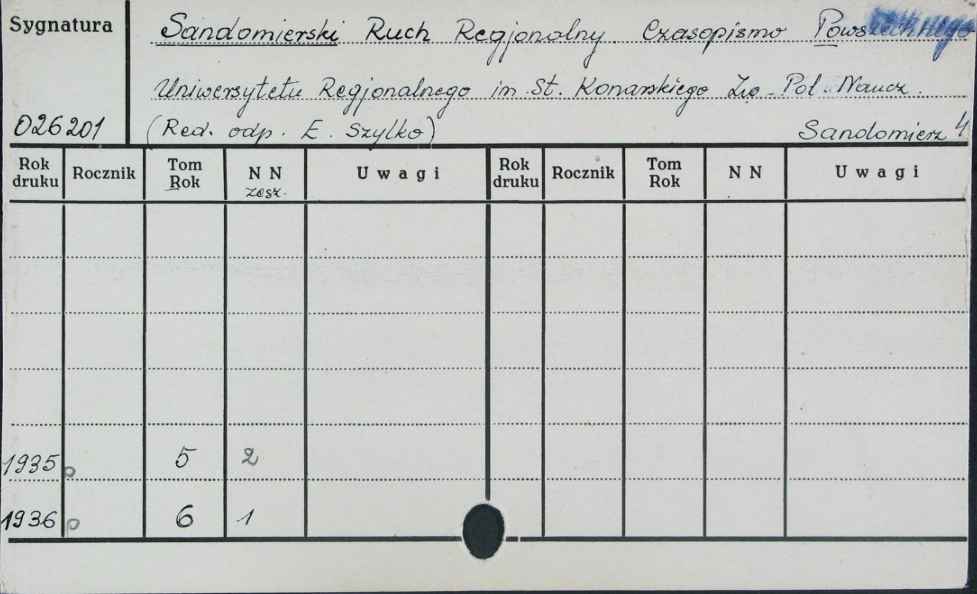 Sygnatura
Sandomierski Ruch Regjonalny. Czasopismo Powszechnego
Uniwersytetu Regjonalnego im St. Konarskiego Zw. Pol. Naucz.
026201
(Red. odp. E. Szylko)
Sandomierz 4
Rok druku Rocznik Tom Rok NN zesz. Uwagi Rok druku Rocznik Tom Rok NN Uwagi
1935 p 5 2
1936 p 6 1